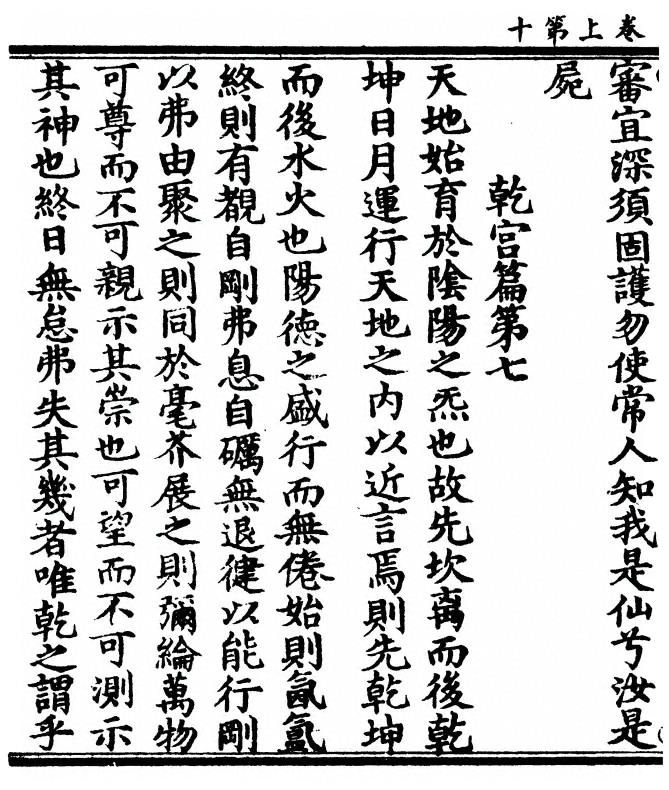 卷上第十
審宜深須固護勿使常人知我是仙兮汝是
屍
乾宫篇第七
天地始育於陰陽之炁也故先坎离而後乾
坤日月運行天地之内以近言焉則先乾坤
而後水火也陽德之盛行而無倦始則氤氳
終則有覩自剛弗息自礪無退健以能行剛
以弗由聚之則同於毫芥展之則彌綸萬物
可尊而不可親示其崇也可望而不可測示
其神也終日無怠弗失其幾者唯乾之謂乎